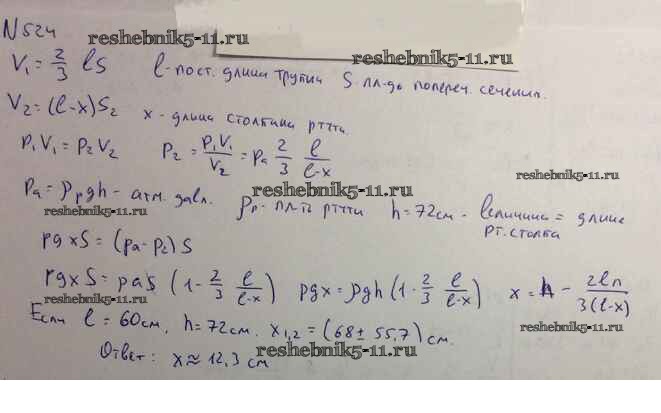 N 524
reshebnik5-11.ru
V₁ = 2/3 lS l - пост. длина трубки S - пл-дь попереч. сечения.
reshebnik5-11.ru
V₂ = (l-x)S₂ x - длина столбика ртути.
P₁V₁ = P₂V₂ P₂ = P₁V₁/V₂ = Pₐ 2/3 l/(l-x)
reshebnik5-11.ru
Pₐ = ρ_p gh - атм. давл. ρ_p - пл-ть ртути h = 72 см - величина = длине рт. столба
reshebnik5-11.ru
reshebnik5-11.ru
ρgxS = (Pₐ - P₂)S
ρgxS = PₐS (1 - 2/3 l/(l-x)) ρgx = ρgh (1 - 2/3 l/(l-x)) x = h - 2lh/3(l-x)
Если l = 60 см, h = 72 см. x₁,₂ = (68 ± 55,7) см.
reshebnik5-11.ru
Ответ: x ≈ 12,3 см
reshebnik5-11.ru